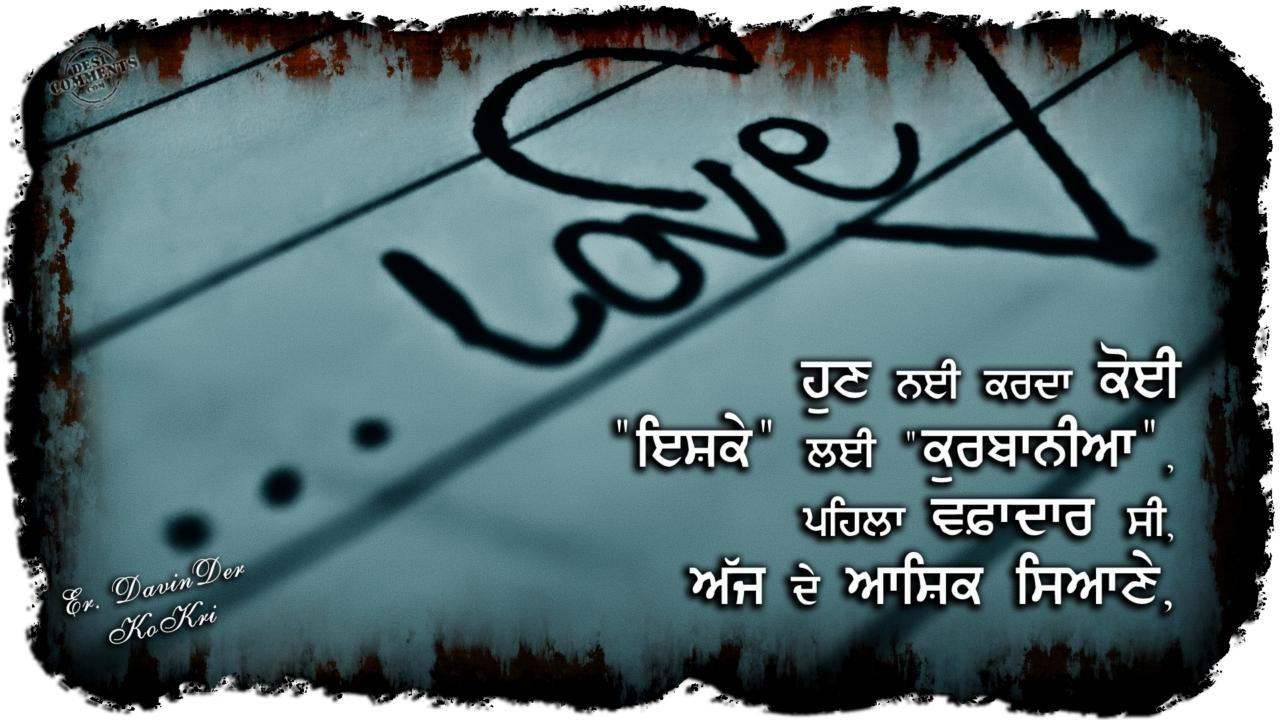 DESI
COMMENTS
.COM
love
ਹੁਣ ਨਈ ਕਰਦਾ ਕੋਈ
"ਇਸ਼ਕੇ" ਲਈ "ਕੁਰਬਾਨੀਆ" ,
ਪਹਿਲਾ ਵਫ਼ਾਦਾਰ ਸੀ,
ਅੱਜ ਦੇ ਆਸ਼ਿਕ ਸਿਆਣੇ,
Er. DavinDer
KoKri